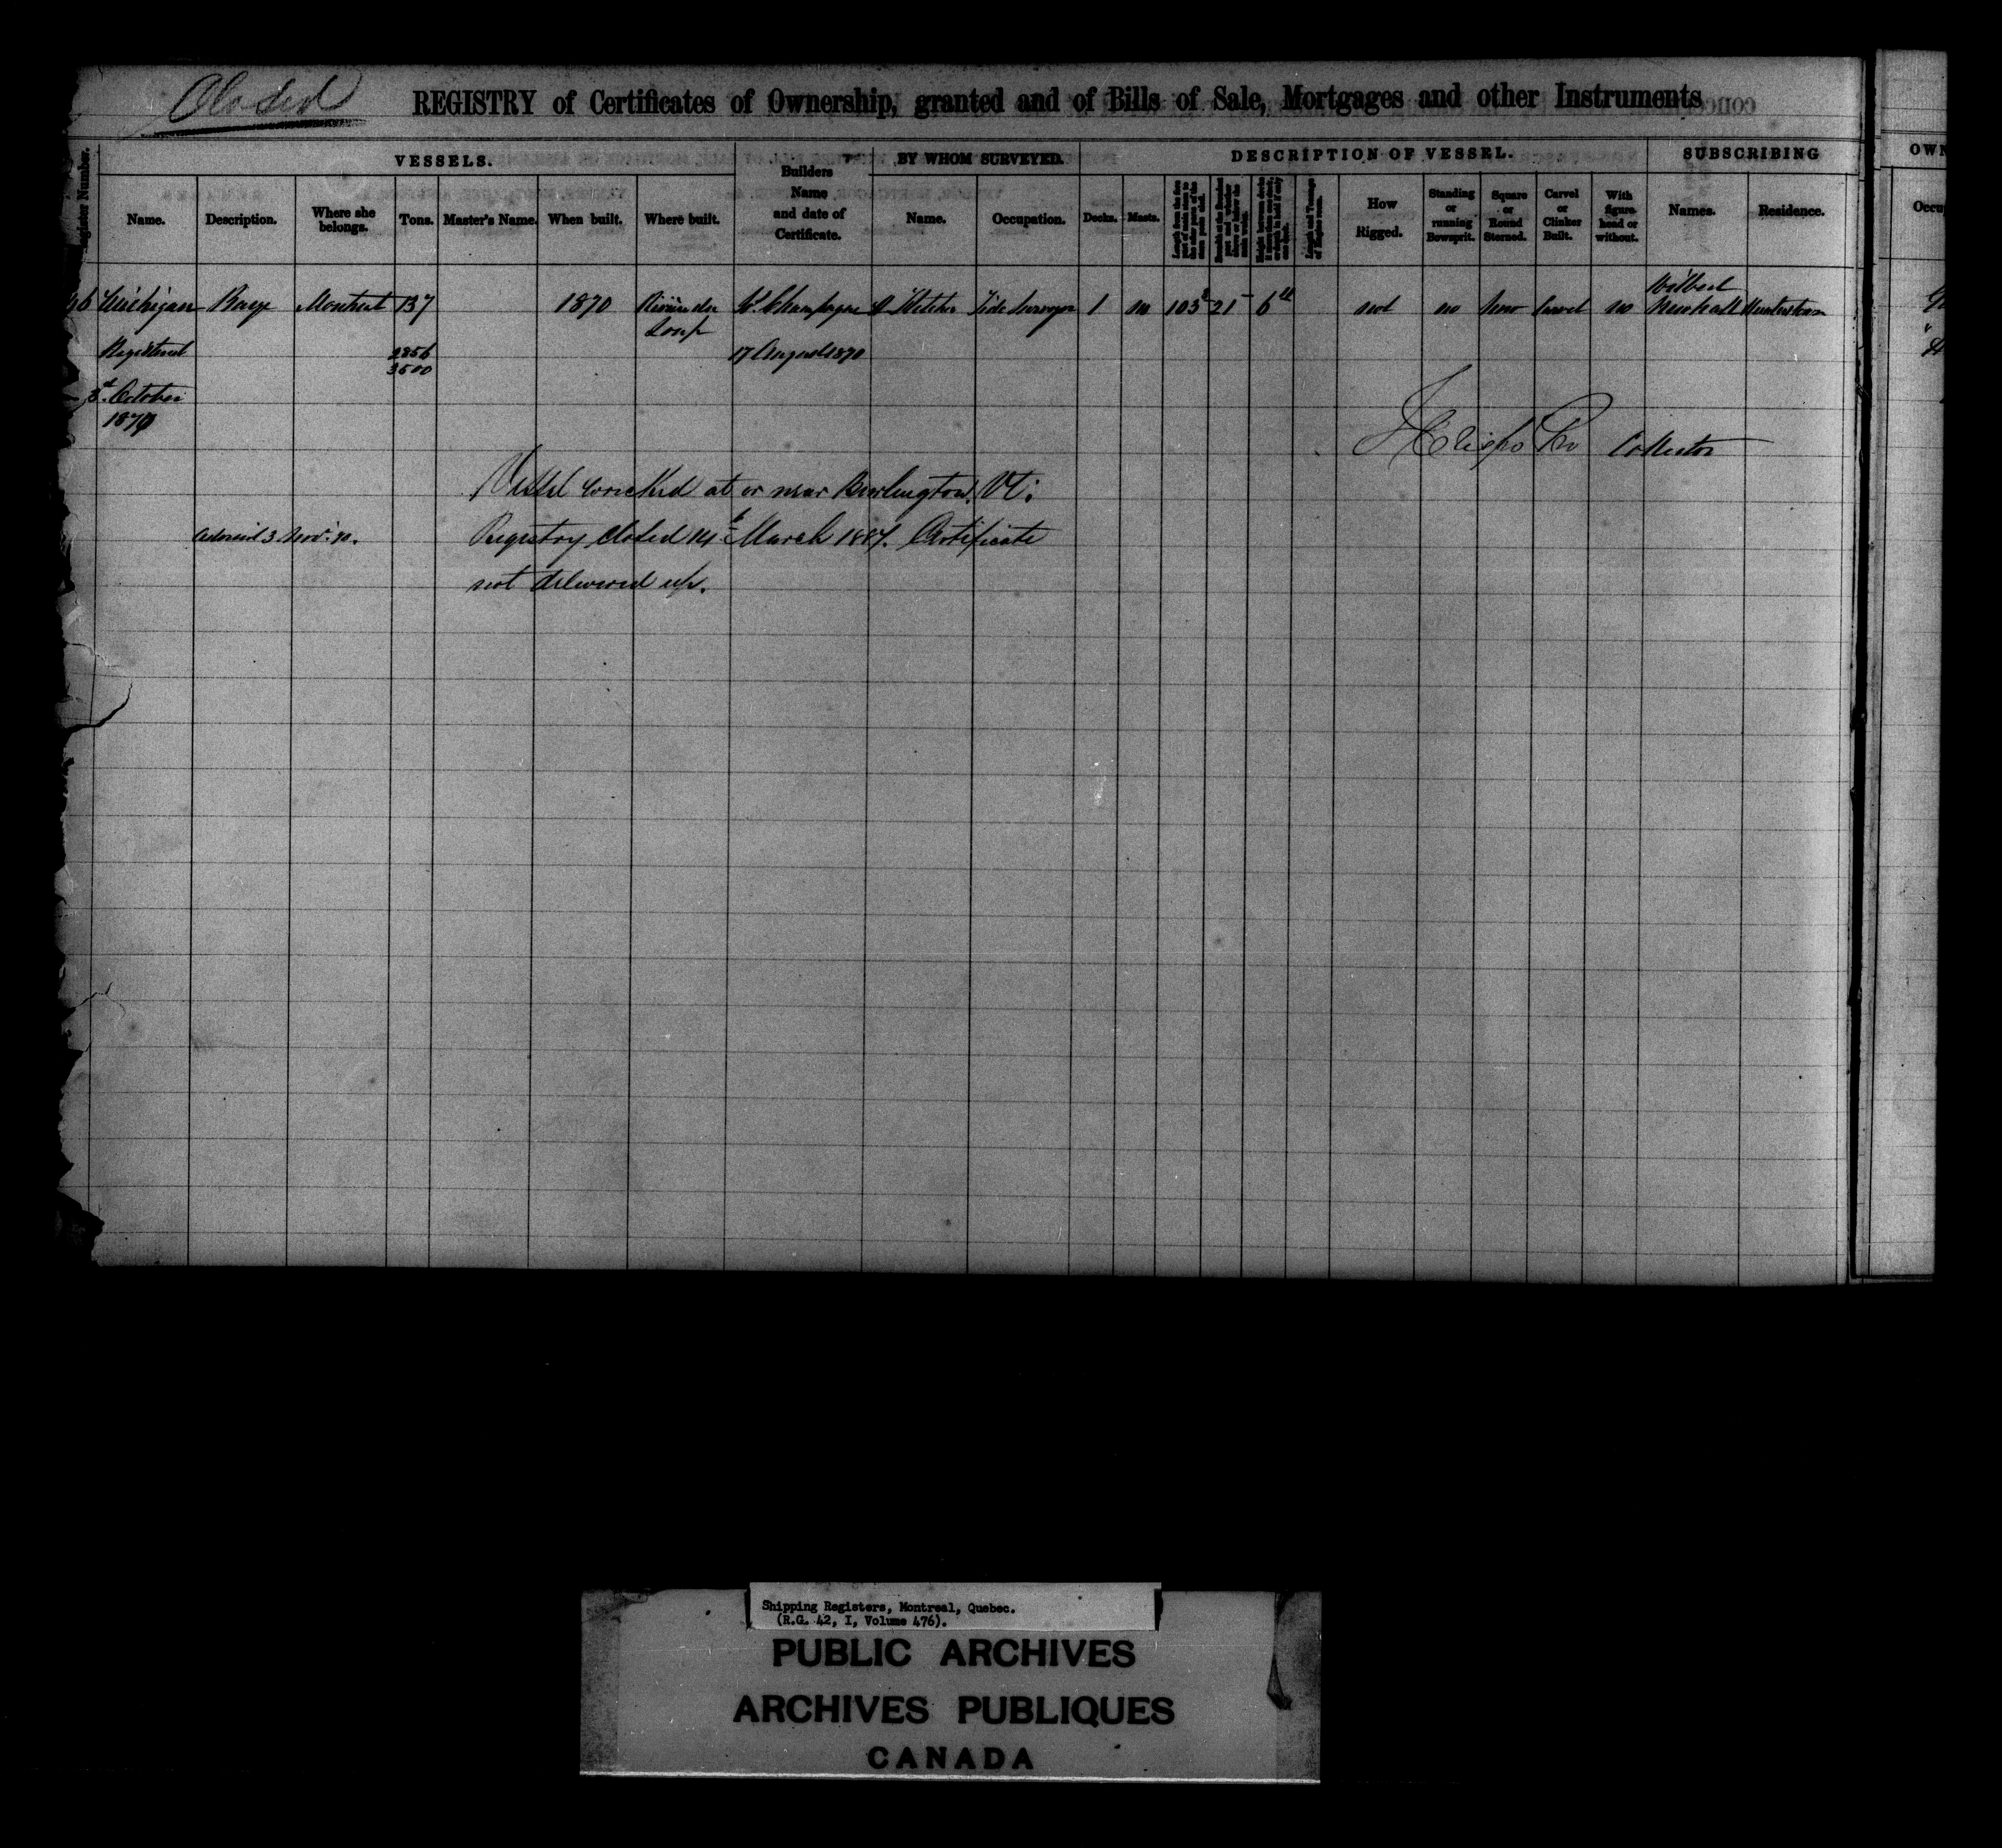 Closed
REGISTRY of Certificates of Ownership, granted and of Bills of Sale, Mortgages and other Instruments
Register Number.
VESSELS.
Builders Name and date of Certificate.
BY WHOM SURVEYED.
DESCRIPTION OF VESSEL.
SUBSCRIBING
OWN
Name. Description. Where she belongs. Tons. Master's Name. When built. Where built. Name. Occupation. Decks. Masts. How Rigged. Standing or running Bowsprit. Square or Round Sterned. Carvel or Clinker Built. With figure-head or without. Names. Residence.
Michigan Barge Montreal 137 1870 Rivière du Loup Champagne Tide Surveyor 1 no 103 21 6 not no Carvel no Wilbert Newhall Hunterstown
Registered 2856 17 August 1870
3500
October
1870
Collector
Vessel wrecked at or near Burlington, Vt:
3 Nov: 70. Registry closed 14th March 1887. Certificate
not delivered up.
Shipping Registers, Montreal, Quebec.
(R.G. 42, I, Volume 476).
PUBLIC ARCHIVES
ARCHIVES PUBLIQUES
CANADA